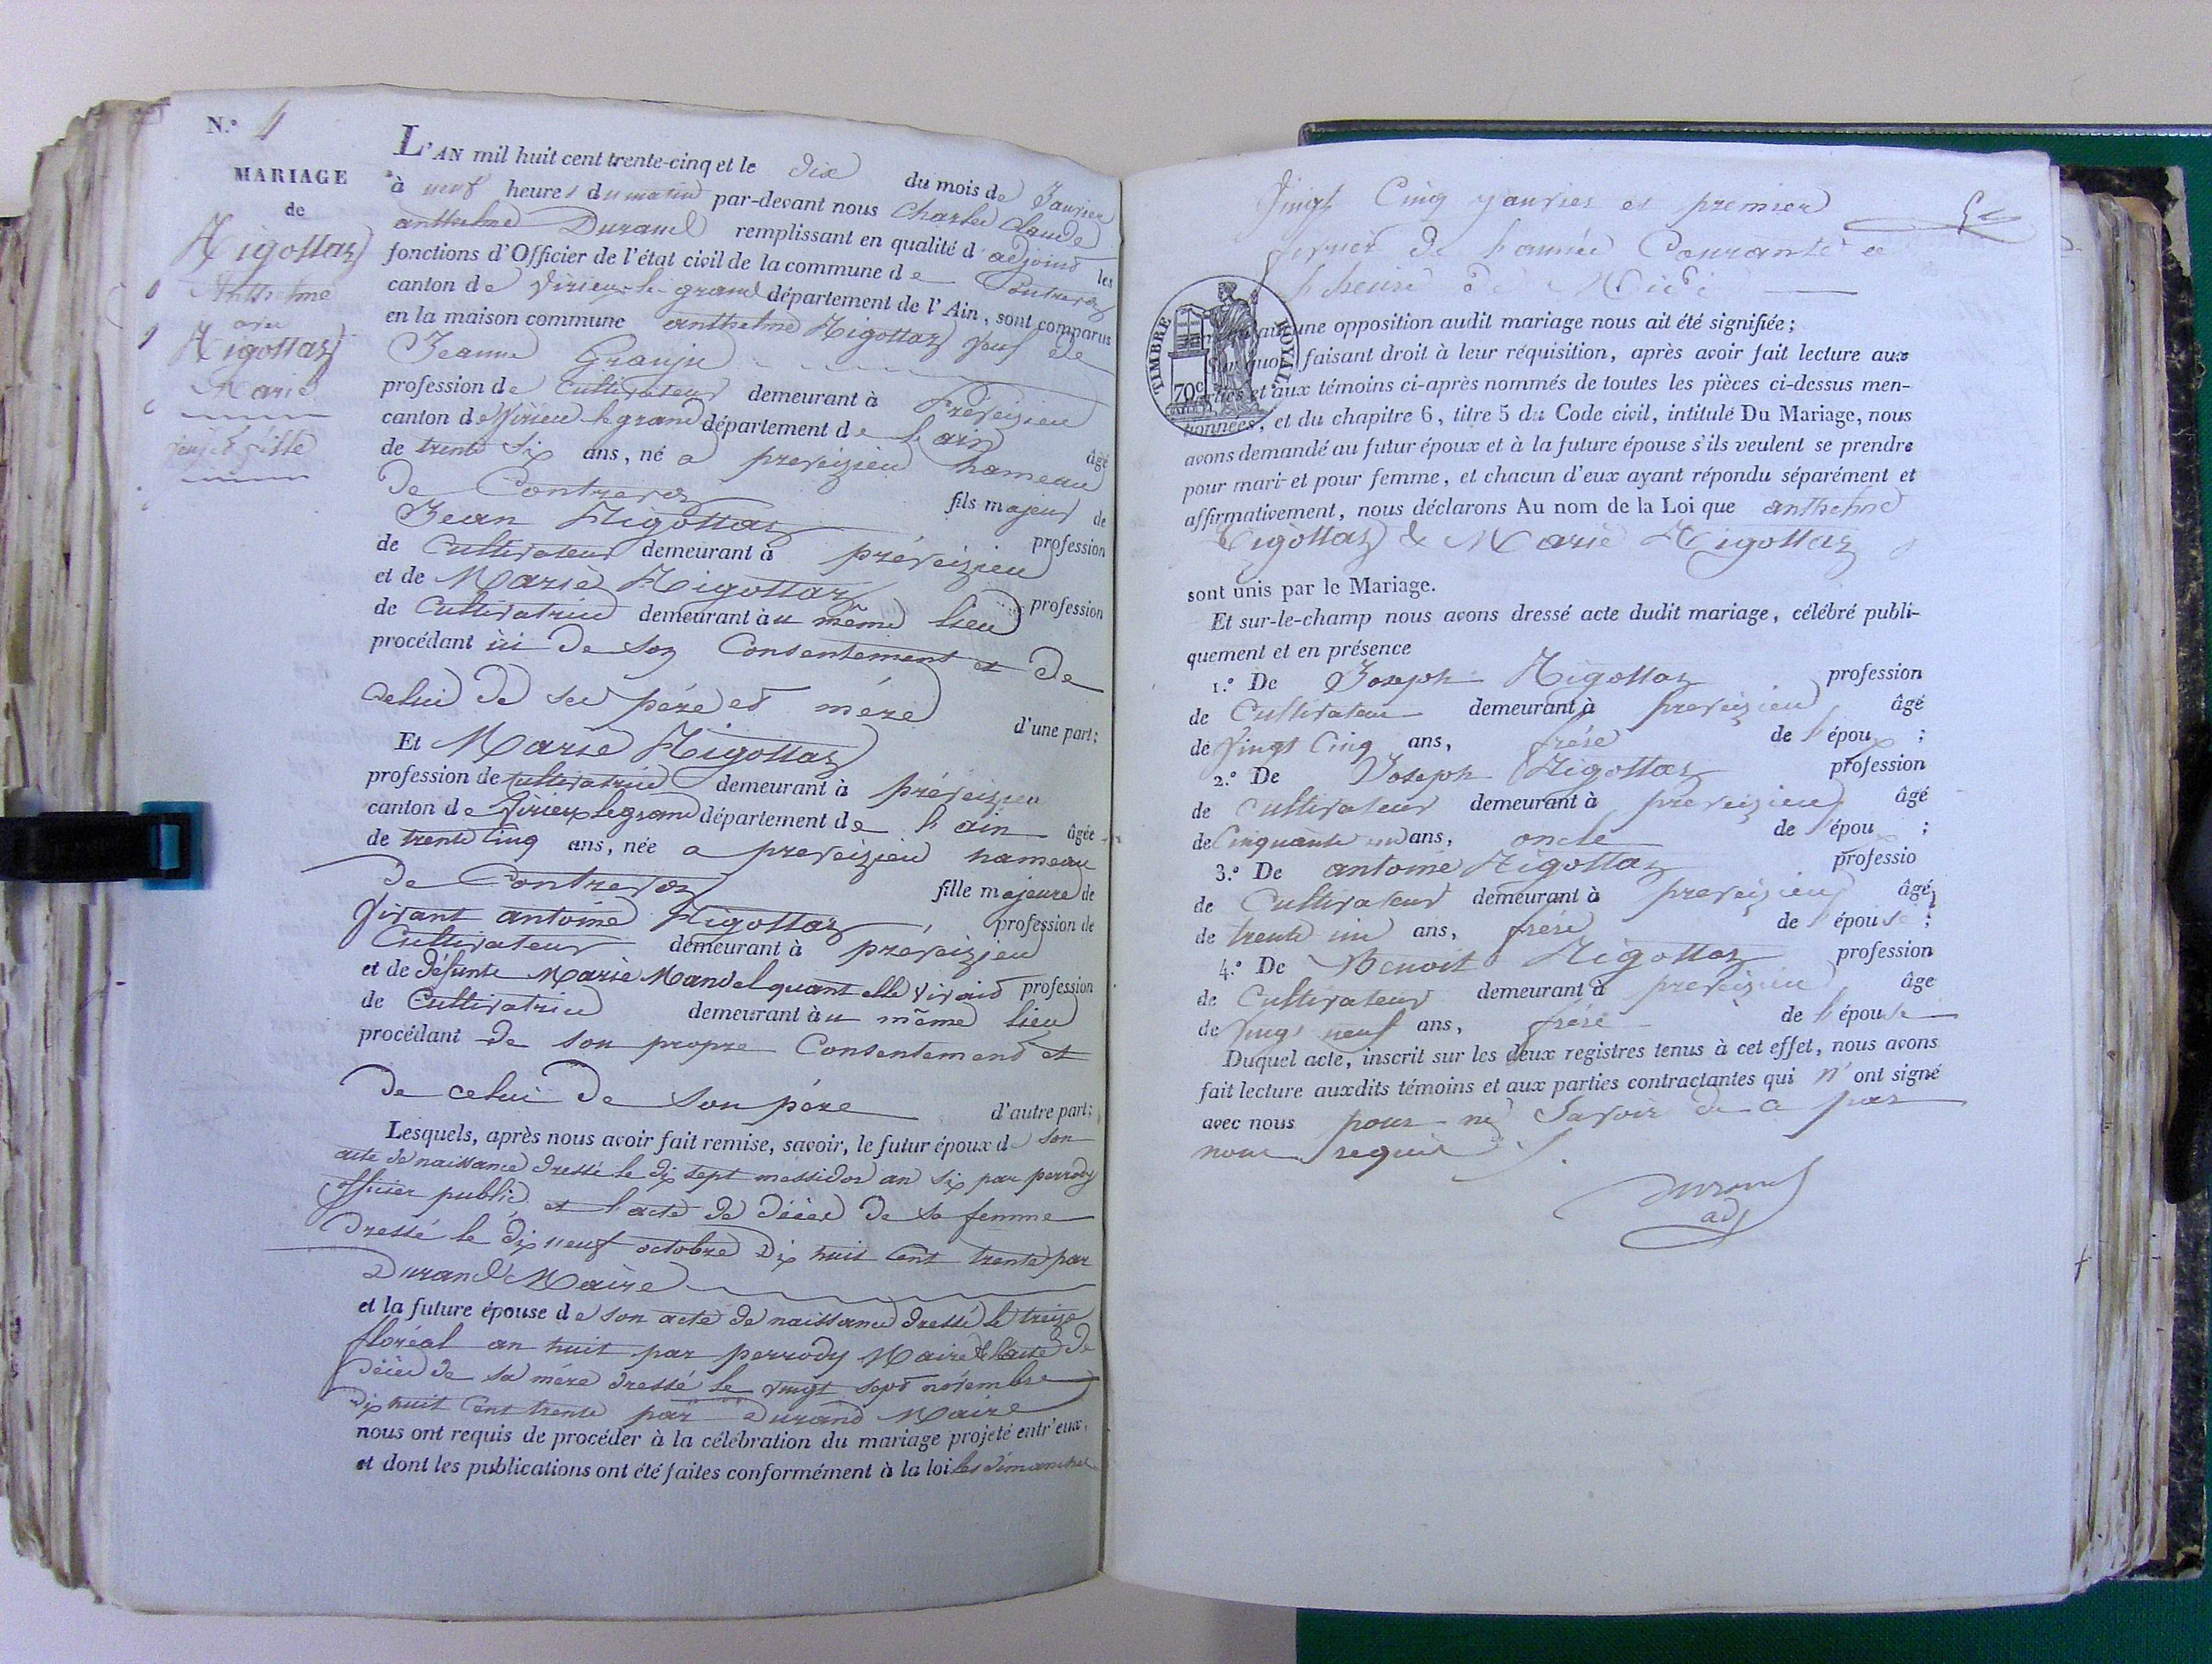 N.° 4
MARIAGE
de
Rigottaz
Anthelme
avec
Rigottaz
Marie
veuf & fille
L'AN mil huit cent trente-cinq et le dix du mois de Janvier
à neuf heures du matin par-devant nous Charles Claude
anthelme Durand remplissant en qualité d'adjoint les
fonctions d'Officier de l'état civil de la commune de Contrevoz
canton de Virieux-le-grand département de l'Ain, sont comparus
en la maison commune anthelme Rigottaz veuf de
Jeanne Granju
profession de Cultivateur demeurant à Préveizieu
canton de Virieu le grand département de l'ain âgé
de trente Six ans, né a preveizieu hameau
de Contrevoz fils majeur de
Jean Rigottaz profession
de Cultivateur demeurant à préveizieu
et de Marie Rigottaz profession
de Cultivatrice demeurant àu même lieu
procédant ici de son Consentement et de
celui de ses père et mère d'une part;
Et Marie Rigottaz
profession de cultivatrice demeurant à préveizieu
canton de Virieux le grand département de l'ain âgée
de trente Cinq ans, née a preveizieu hameau
de Contrevoz fille majeure de
vivant antoine Rigottaz profession de
Cultivateur demeurant à préveizieu
et de défunte Marie Mandel quant elle vivois profession
de Cultivatrice demeurant àu même lieu
procédant de son propre Consentement et
de celui de Son père d'autre part;
Lesquels, après nous avoir fait remise, savoir, le futur époux de son
acte de naissance dressé le dix sept messidor an six par perrody
officier public et l'acte de décès de sa femme
dressé le dix neuf octobre dix huit Cent trente par
Durand Maire
et la future épouse de son acte de naissance dressé le treize
floréal an huit par perrody Maire & l'acte de
décès de sa mère dressé le vingt sept novembre
dix huit Cent trente par Durand Maire
nous ont requis de procéder à la célébration du mariage projeté entr'eux,
et dont les publications ont été faites conformément à la loi les dimanches
Vingt Cinq janvier et premier
fevrier de l'année Courante a
l'heure de Midi
TIMBRE ROYAL
70c
aucune opposition audit mariage nous ait été signifiée;
quoi, faisant droit à leur réquisition, après avoir fait lecture aux
parties et aux témoins ci-après nommés de toutes les pièces ci-dessus men-
tionnées, et du chapitre 6, titre 5 du Code civil, intitulé Du Mariage, nous
avons demandé au futur époux et à la future épouse s'ils veulent se prendre
pour mari et pour femme, et chacun d'eux ayant répondu séparément et
affirmativement, nous déclarons Au nom de la Loi que anthelme
Rigottaz & Marie Rigottaz
sont unis par le Mariage.
Et sur-le-champ nous avons dressé acte dudit mariage, célébré publi-
quement et en présence
1.° De Joseph Rigottaz profession
de Cultivateur demeurant à preveizieu âgé
de vingt Cinq ans, frère de l'époux ;
2.° De Joseph Rigottaz profession
de cultivateur demeurant à preveizieu âgé
de Cinquante un ans, oncle de l'époux ;
3.° De antoine Rigottaz professio
de Cultivateur demeurant à preveizieu âgé
de trente un ans, frère de l'épouse ;
4.° De Benoit Rigottaz profession
de Cultivateur demeurant à preveizieu âge
de vingt neuf ans, frère de l'épouse
Duquel acte, inscrit sur les deux registres tenus à cet effet, nous avons
fait lecture auxdits témoins et aux parties contractantes qui n'ont signé
avec nous pour ne Savoir de a par
nous requis
Durand
adj